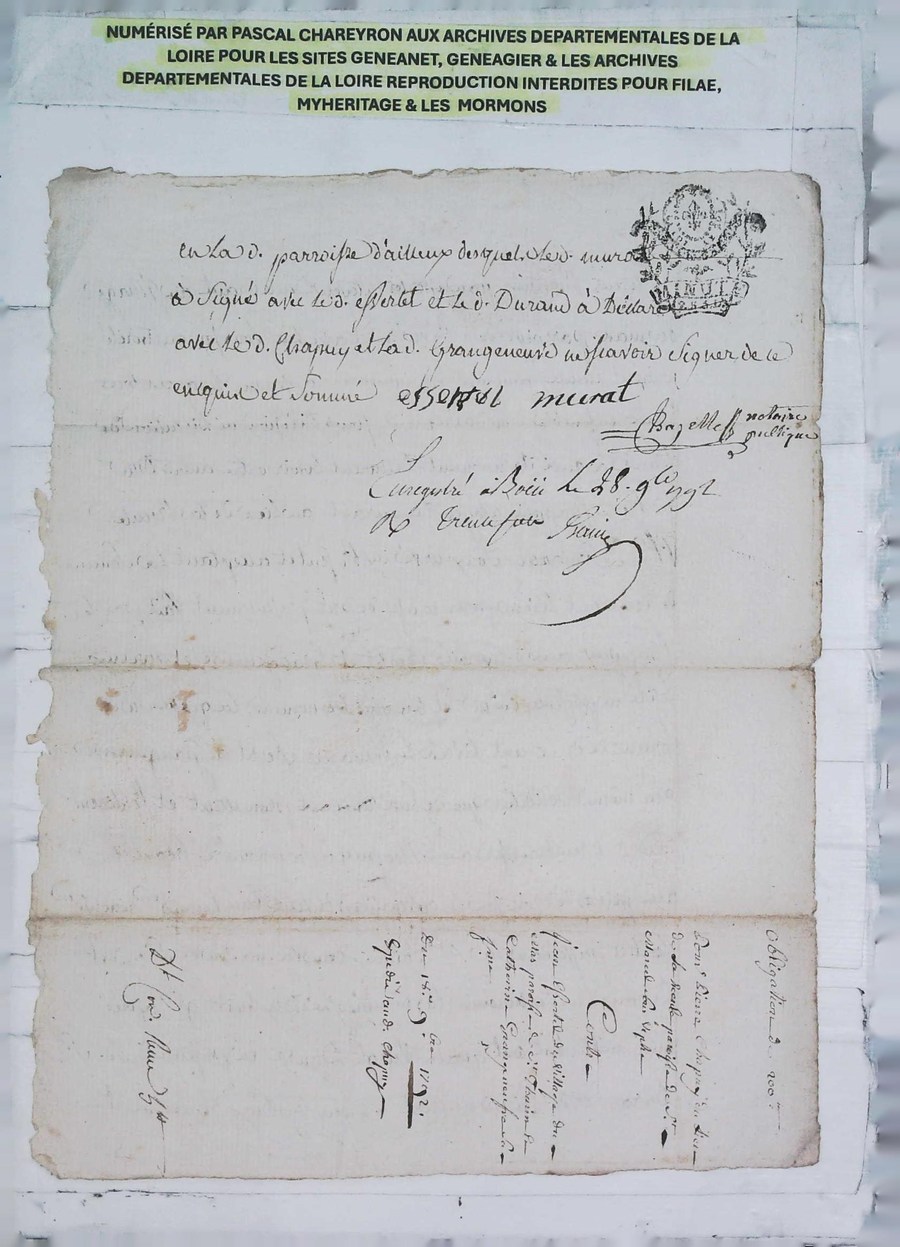 NUMÉRISÉ PAR PASCAL CHAREYRON AUX ARCHIVES DEPARTEMENTALES DE LA
LOIRE POUR LES SITES GENEANET, GENEAGIER & LES ARCHIVES
DEPARTEMENTALES DE LA LOIRE REPRODUCTION INTERDITES POUR FILAE,
MYHERITAGE & LES MORMONS
en la d. parroisse d'ailleux desquels led. murat
à Signé avec led. essertel et led. Durand à Déclaré
avec led. Chapuy et lad. Grangeneuve ne scavoir Signer de ce
enquis et Sommé essertel murat
Chazelle notaire
publique
Enregistré à Boën le 28. 9bre 1792
R trente sous
MINUTE
Obligation de 200
Pour Pierre Chapuy du lieu
de la parroisse de St
Marcel
Contre
Jean Essertel du village du
Mas paroisse de St Thurin &
Catherine Grangeneuve sa
femme
Du 18e 9bre 1792.
Expédié aud. Chapuy